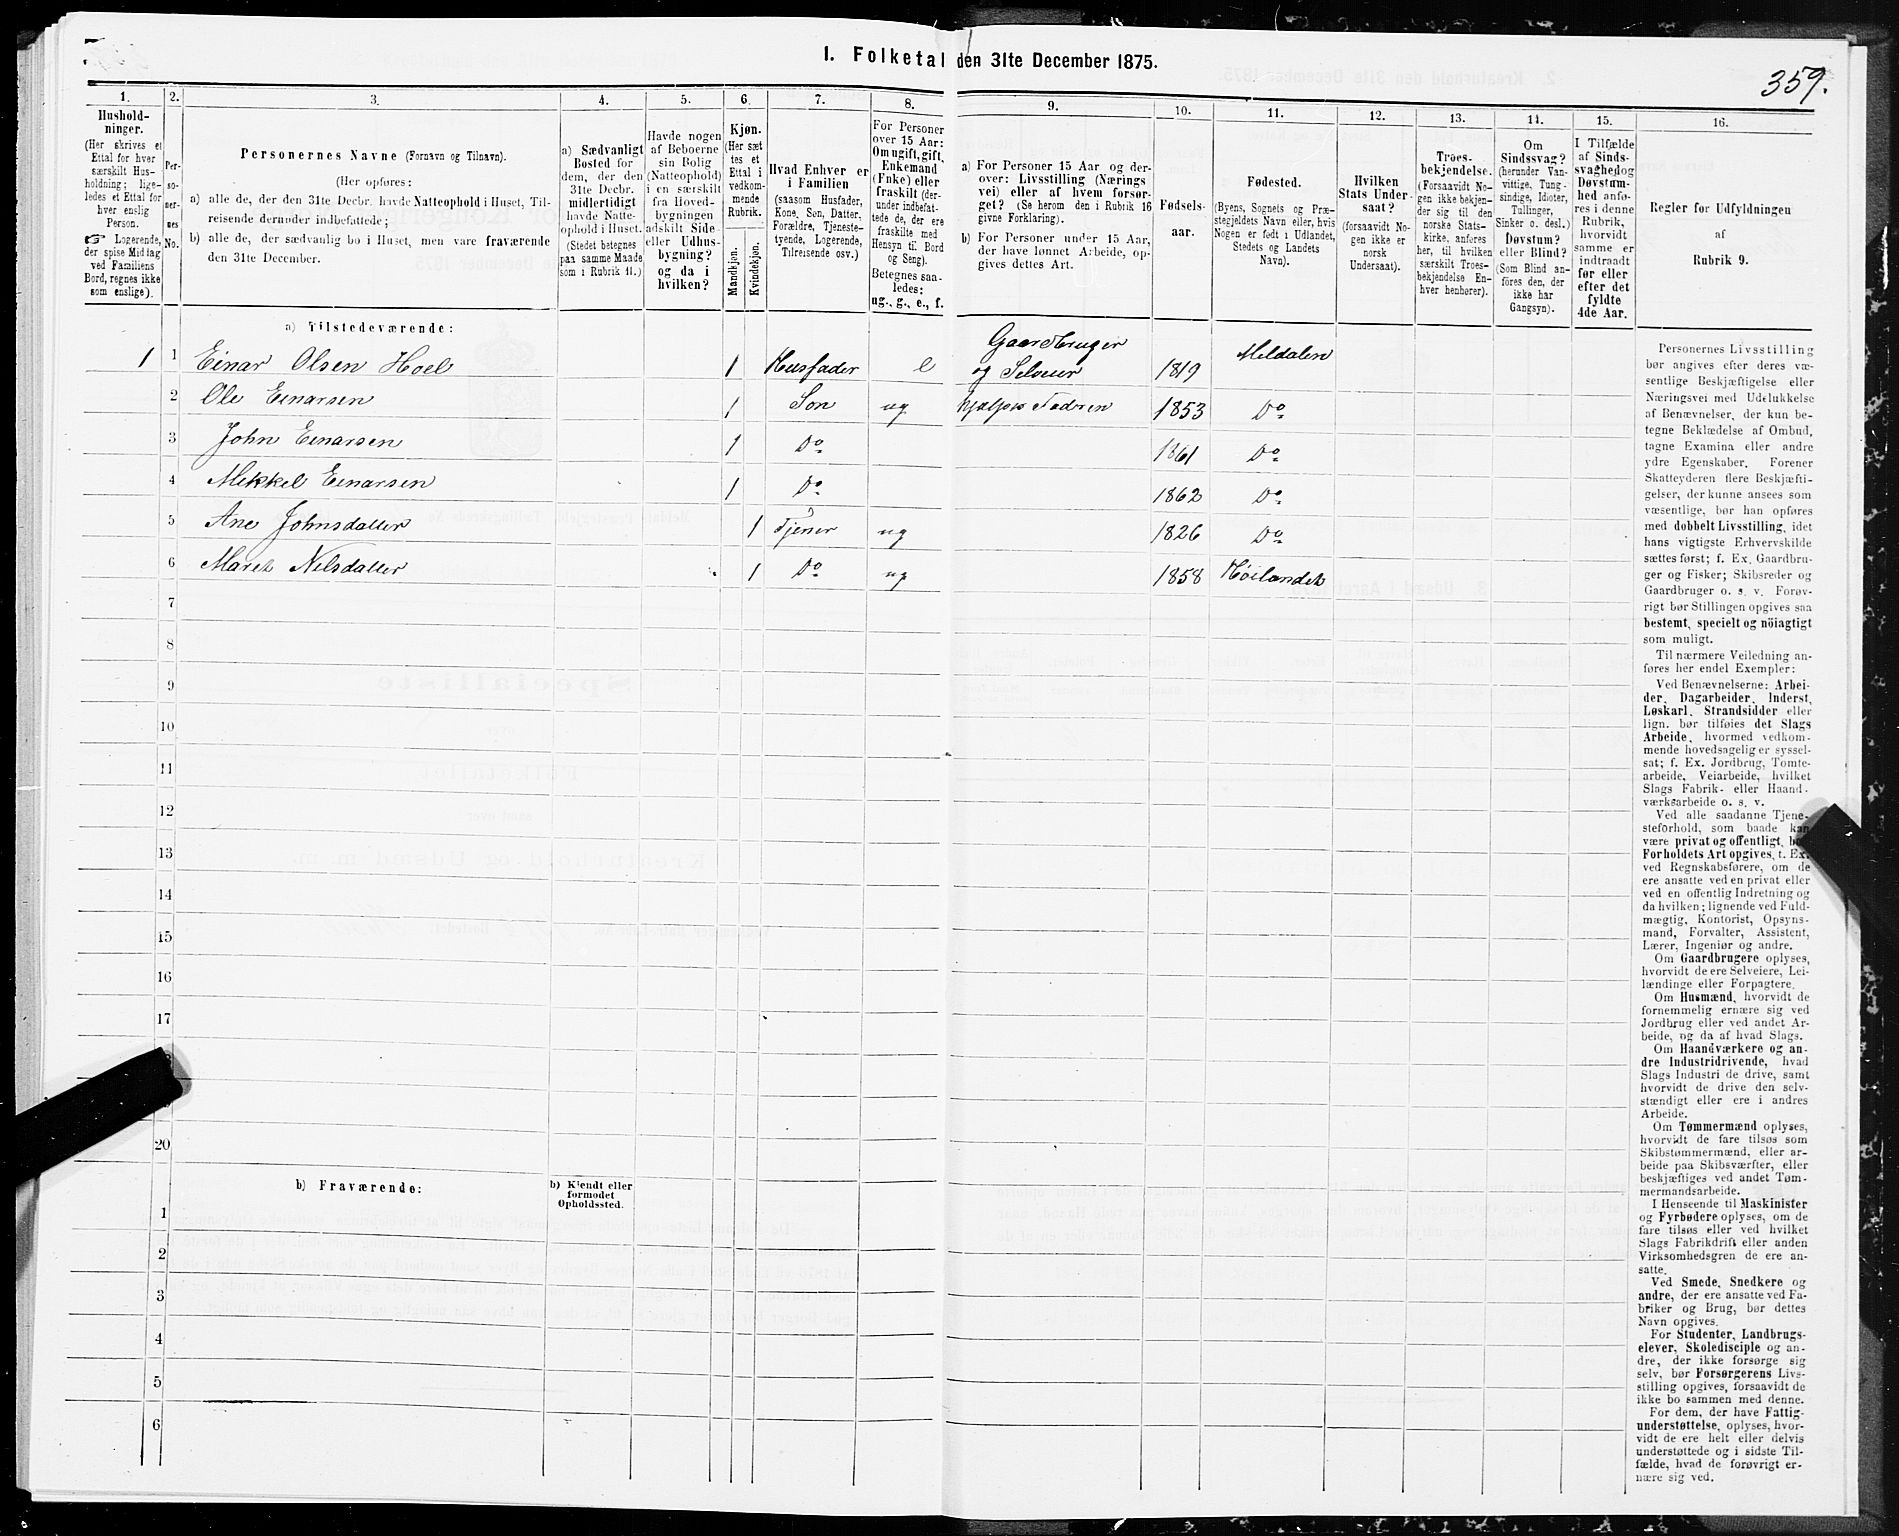 I. Folketal den 31te December 1875.
359.
1.
2.
3.
4.
5.
6.
7.
8.
9.
10.
11.
12.
13.
14.
15.
16.
Hushold-
ninger.
(Her skrives et
Ettal for hver
særskilt Hus-
holdning; lige-
ledes et Ettal for
hver enslig
Person.
☞ Logerende,
der spise Middag
ved Familiens
Bord, regnes ikke
som enslige).
Per-
so-
ner-
nes
No.
Personernes Navne (Fornavn og Tilnavn).
(Her opføres:
a) alle de, der den 31te Decbr. havde Natteophold i Huset, Til-
reisende derunder indbefattede;
b) alle de, der sædvanlig bo i Huset, men vare fraværende
den 31te December.
a) Sædvanligt
Bosted for
dem, der den
31te Decbr.
midlertidigt
havde Natte-
ophold i Huset.
(Stedet betegnes
paa samme Maade
som i Rubrik 11.)
Havde nogen
af Beboerne
sin Bolig
(Natteophold)
i en særskilt
fra Hoved-
bygningen
adskilt Side-
eller Udhus-
bygning?
og da i
hvilken?
Kjøn.
(Her sæt-
tes et
Ettal i
vedkom-
mende
Rubrik.
Mandkjøn.
Kvindekjøn.
Hvad Enhver er
i Familien
(saasom Husfader,
Kone, Søn, Datter,
Forældre, Tjeneste-
tyende, Logerende,
Tilreisende osv.)
For Personer
over 15 Aar:
Om ugift, gift,
Enkemand
(Enke) eller
fraskilt (der-
under indbefat-
tede de, der ere
fraskilte med
Hensyn til Bord
og Seng).
Betegnes saa-
ledes:
ug., g., e., f.
a) For Personer 15 Aar og der-
over: Livsstilling (Nærings-
vei) eller af hvem forsør-
get? (Se herom den i Rubrik 16
givne Forklaring).
b) For Personer under 15 Aar,
der have lønnet Arbeide, op-
gives dettes Art.
Fødsels-
aar.
Fødested.
(Byens, Sognets og Præ-
stegjeldets Navn eller, hvis
Nogen er født i Udlandet,
Stedets og Landets
Navn).
Hvilken
Stats Under-
saat?
(forsaavidt No-
gen ikke er
norsk
Undersaat).
Troes-
bekjendelse.
(Forsaavidt No-
gen ikke bekjen-
der sig til den
norske Stats-
kirke, anføres
her, til hvilken
særskilt Troes-
bekjendelse En-
hver henhører).
Om
Sindssvag?
(herunder Van-
vittige, Tung-
sindige, Idioter,
Tullinger,
Sinker o. desl.)
Døvstum?
eller Blind?
(Som Blind an-
føres den, der
ikke har
Gangsyn).
I Tilfælde
af Sinds-
svaghed og
Døvstum-
hed anfø-
res i denne
Rubrik,
hvorvidt
samme er
indtraadt
før eller
efter det
fyldte
4de Aar.
Regler for Udfyldningen
af
Rubrik 9.
a) Tilstedeværende:
1 1 Einar Olsen Hoel 1 Husfader e Gaardbruger og Selveier 1819 Meldalen
2 Ole Einarsen 1 Søn ug hjælper Faderen 1853 Do
3 John Einarsen 1 Do 1861 Do
4 Mikkel Einarsen 1 Do 1862 Do
5 Ane Johnsdatter 1 Tjener ug 1826 Do
6 Maret Nilsdatter 1 Do ug 1858 Høilandet
7
8
9
10
11
12
13
14
15
16
17
20
b) Fraværende:
b) Kjendt eller
formodet
Opholdssted.
1
2
3
4
5
6
Personernes Livsstilling
bør angives efter deres væ-
sentlige Beskjæftigelse eller
Næringsvei med Udelukkelse
af Benævnelser, der kun be-
tegne Beklædelse af Ombud,
tagne Examina eller andre
ydre Egenskaber. Forener
Skatteyderen flere Beskjæfti-
gelser, der kunne ansees som
væsentlige, bør han opføres
med dobbelt Livsstilling, idet
hans vigtigste Erhvervskilde
sættes først; f. Ex. Gaardbru-
ger og Fisker; Skibsreder og
Gaardbruger o. s. v. Forøv-
rigt bør Stillingen opgives saa
bestemt, specielt og nöiagtigt
som muligt.
Til nærmere Veiledning an-
føres her endel Exempler:
Ved Benævnelserne: Arbei-
der, Dagarbeider, Inderst,
Løskarl, Strandsidder eller
lign. bør tilføies det Slags
Arbeide, hvormed vedkom-
mende hovedsagelig er syssel-
sat; f. Ex. Jordbrug, Tomte-
arbeide, Veiarbeide, hvilket
Slags Fabrik- eller Haand-
værksarbeide o. s. v.
Ved alle saadanne Tjene-
steforhold, som baade kan
være privat og offentligt, bør
Forholdets Art opgives, t. Ex.
ved Regnskabsførere, om de
ere ansatte ved en privat eller
ved en offentlig Indretning og
da hvilken; lignende ved Fuld-
mægtig, Kontorist, Opsyns-
mand, Forvalter, Assistent,
Lærer, Ingeniør og andre.
Om Gaardbrugere oplyses,
hvorvidt de ere Selveiere, Lei-
lændinge eller Forpagtere.
Om Husmænd, hvorvidt de
fornemmelig ernære sig ved
Jordbrug eller ved andet Ar-
beide, og da af hvad Slags.
Om Haandværkere og an-
dre Industridrivende, hvad
Slags Industri de drive, samt
hvorvidt de drive den selv-
stændigt eller ere i andres
Arbeide.
Om Tømmermænd oplyses,
hvorvidt de fare tilsøs som
Skibstømmermænd, eller ar-
beide paa Skibsværfter, eller
beskjæftiges ved andet Tøm-
mermandsarbeide.
I Henseende til Maskinister
og Fyrbødere oplyses, om de
fare tilsøs eller ved hvilket
Slags Fabrikdrift eller anden
Virksomhedsgren de ere an-
satte.
Ved Smede, Snedkere og
andre, der ere ansatte ved Fa-
briker og Brug, bør dettes
Navn opgives.
For Studenter, Landbrugs-
elever, Skoledisciple og an-
dre, der ikke forsørge sig
selv, bør Forsørgerens Livs-
stilling opgives, forsaavidt de
ikke bo sammen med denne.
For dem, der have Fattig-
understøttelse, oplyses, hvor-
vidt de ere helt eller delvis
understøttede og i sidste Til-
fælde, hvad de forøvrigt er-
nære sig ved.